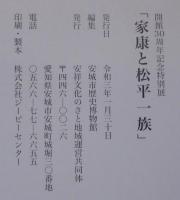 開館30周年記念特別展
「家康と松平一族」
発行日　令和三年一月三十日
編集　安城市歴史博物館
発行　安祥文化のさと地域運営共同体
〒四四六―〇〇二六
愛知県安城市安城町城堀三〇番地
電話　〇五六六―七七―六六五五
印刷・製本　株式会社ジーピーセンター